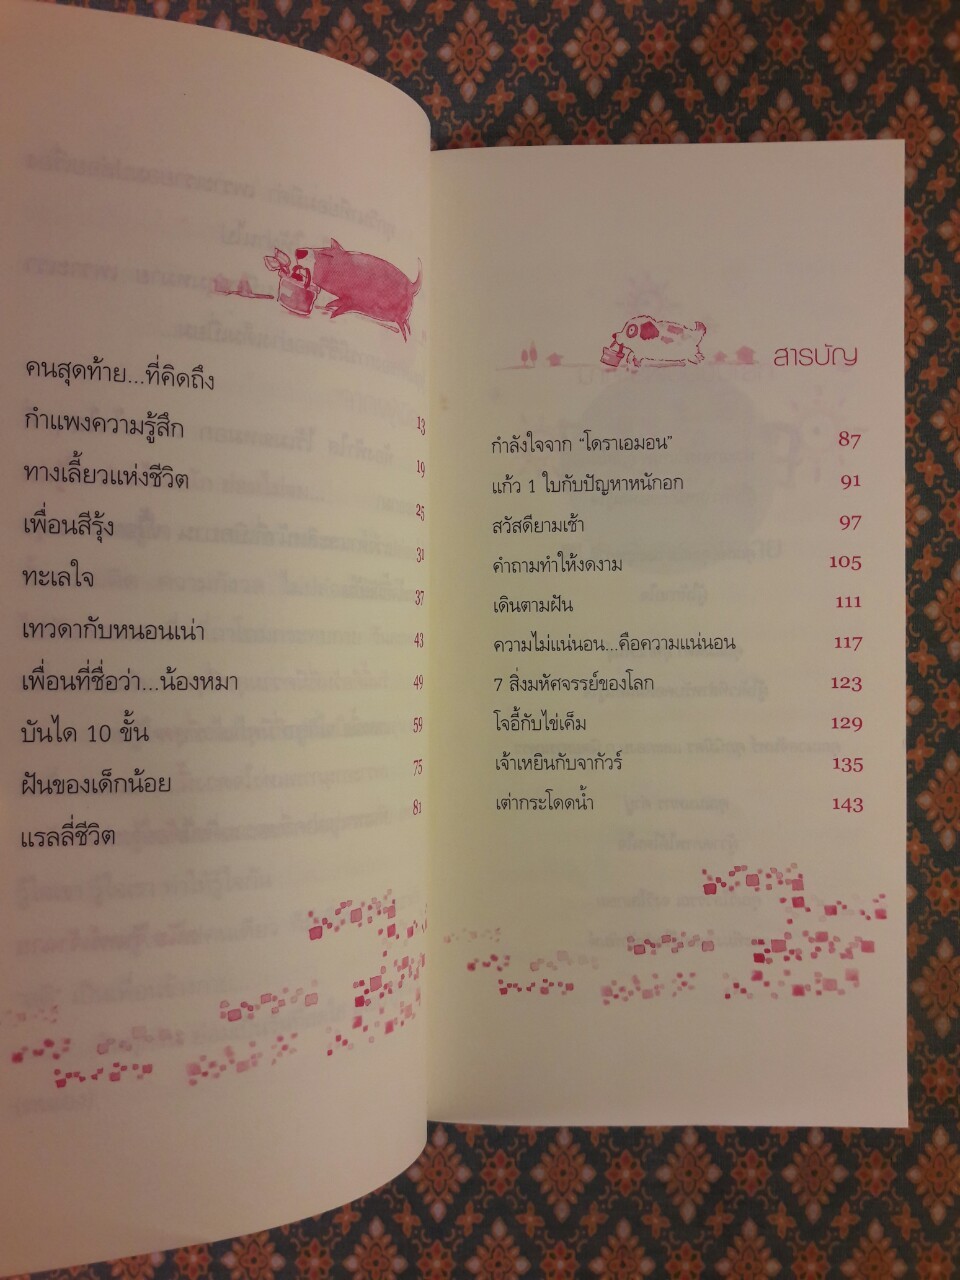 คนสุดท้าย...ที่คิดถึง 13
กำแพงความรู้สึก 19
ทางเลี้ยวแห่งชีวิต 25
เพื่อนสีรุ้ง 31
ทะเลใจ 37
เทวดากับหนอนเน่า 43
เพื่อนที่ชื่อว่า...น้องหมา 49
บันได 10 ขั้น 59
ฝันของเด็กน้อย 75
แรลลี่ชีวิต 81
สารบัญ
กำลังใจจาก “โดราเอมอน” 87
แก้ว 1 ใบกับปัญหาหนักอก 91
สวัสดียามเช้า 97
คำถามทำให้งดงาม 105
เดินตามฝัน 111
ความไม่แน่นอน...คือความแน่นอน 117
7 สิ่งมหัศจรรย์ของโลก 123
โจอี้กับไข่เค็ม 129
เจ้าเหยินกับจากัวร์ 135
เต่ากระโดดน้ำ 143